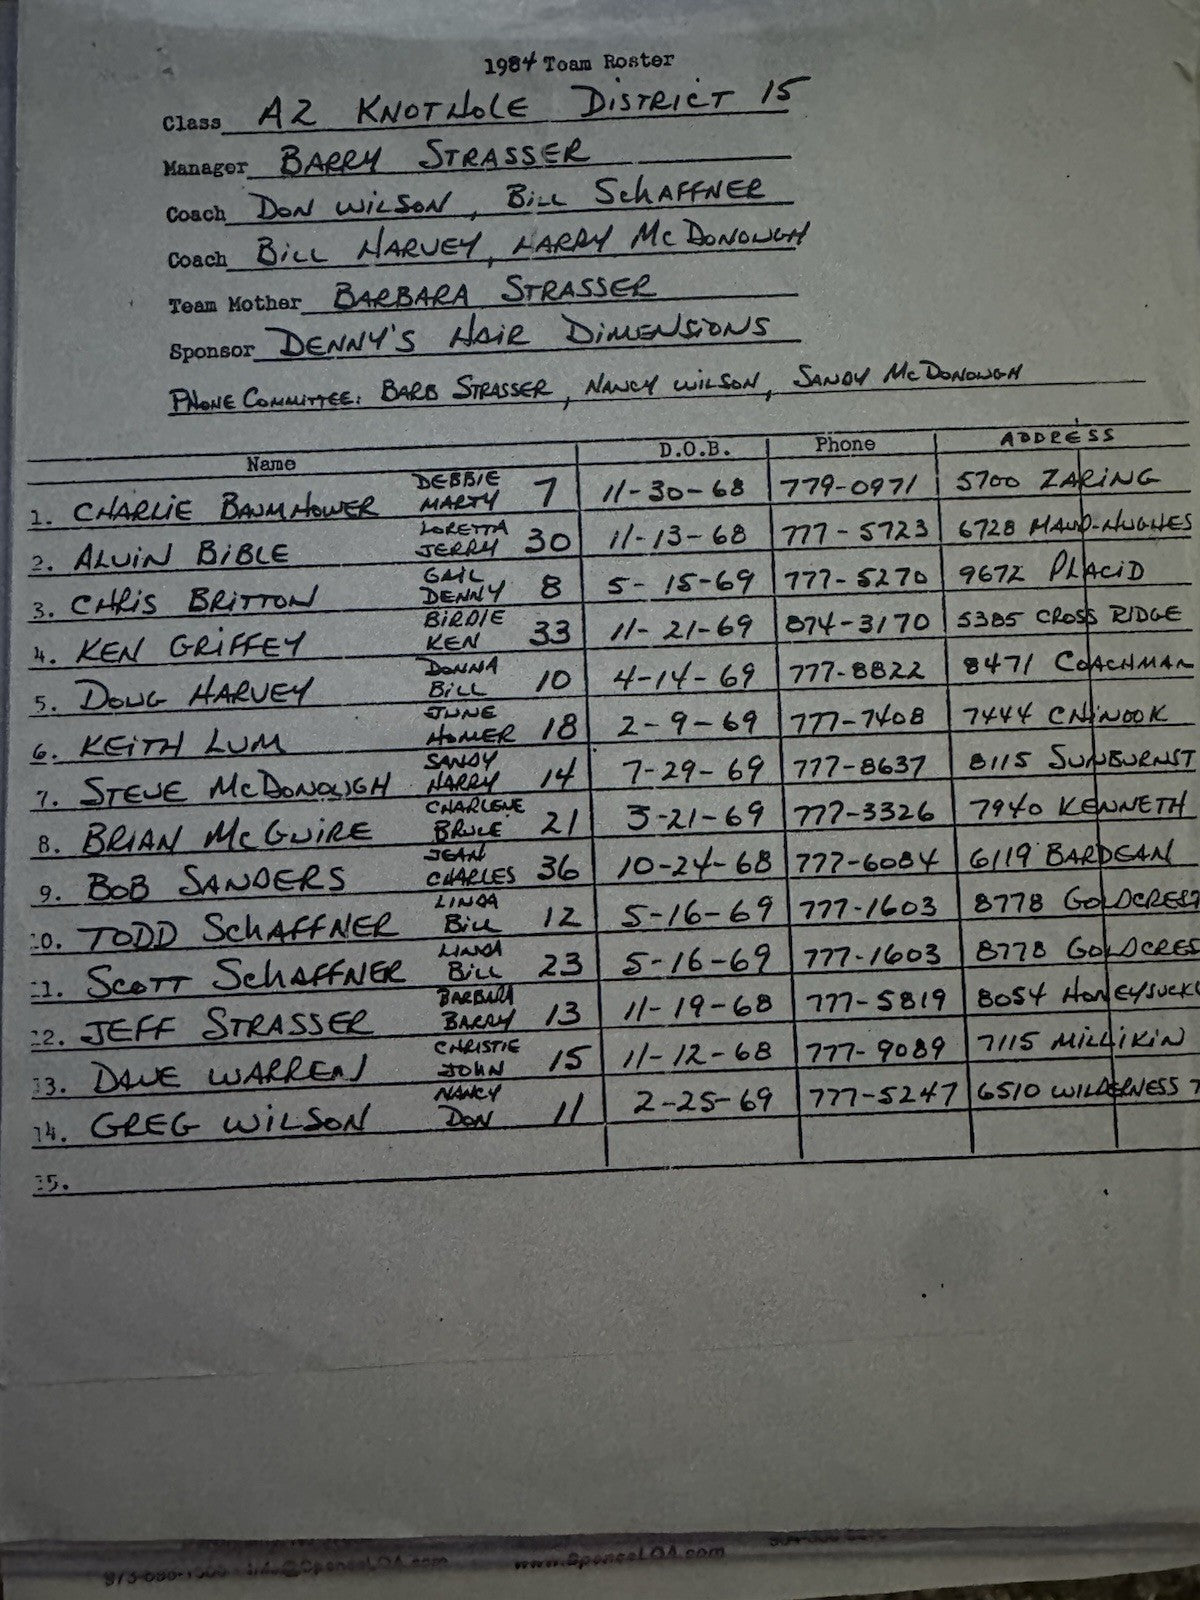 1984 Team Roster
Class A2 KNOTHOLE DISTRICT 15
Manager BARRY STRASSER
Coach DON WILSON, BILL SCHAFFNER
Coach BILL HARVEY, HARRY MCDONOUGH
Team Mother BARBARA STRASSER
Sponsor DENNY'S HAIR DIMENSIONS
PHONE COMMITTEE: BARB STRASSER, NANCY WILSON, SANDY MCDONOUGH
Name D.O.B. Phone ADDRESS
1. CHARLIE BAUMHOWER DEBBIE MARTY 7 11-30-68 779-0971 5700 ZARING
2. ALVIN BIBLE LORETTA JERRY 30 11-13-68 777-5723 6728 MAUD-HUGHES
3. CHRIS BRITTON GAIL DENNY 8 5-15-69 777-5270 9672 PLACID
4. KEN GRIFFEY BIRDIE KEN 33 11-21-69 874-3170 5385 CROSS RIDGE
5. DOUG HARVEY DONNA BILL 10 4-14-69 777-8822 8471 COACHMAN
6. KEITH LUM JUNE HOMER 18 2-9-69 777-7408 7444 CHINOOK
7. STEVE MCDONOUGH SANDY HARRY 14 7-29-69 777-8637 8115 SUNBURNST
8. BRIAN MCGUIRE CHARLENE BRUCE 21 3-21-69 777-3326 7940 KENNETH
9. BOB SANDERS JEAN CHARLES 36 10-24-68 777-6084 6119 BARDEAN
10. TODD SCHAFFNER LINDA BILL 12 5-16-69 777-1603 8778 GOLDCREST
11. SCOTT SCHAFFNER LINDA BILL 23 5-16-69 777-1603 8778 GOLDCRES
12. JEFF STRASSER BARBARA BARRY 13 11-19-68 777-5819 8054 HONEYSUCKL
13. DAVE WARREN CHRISTIE JOHN 15 11-12-68 777-9089 7115 MILLIKIN
14. GREG WILSON NANCY DON 11 2-25-69 777-5247 6510 WILDERNESS T
15.
www.SpenceLOA.com